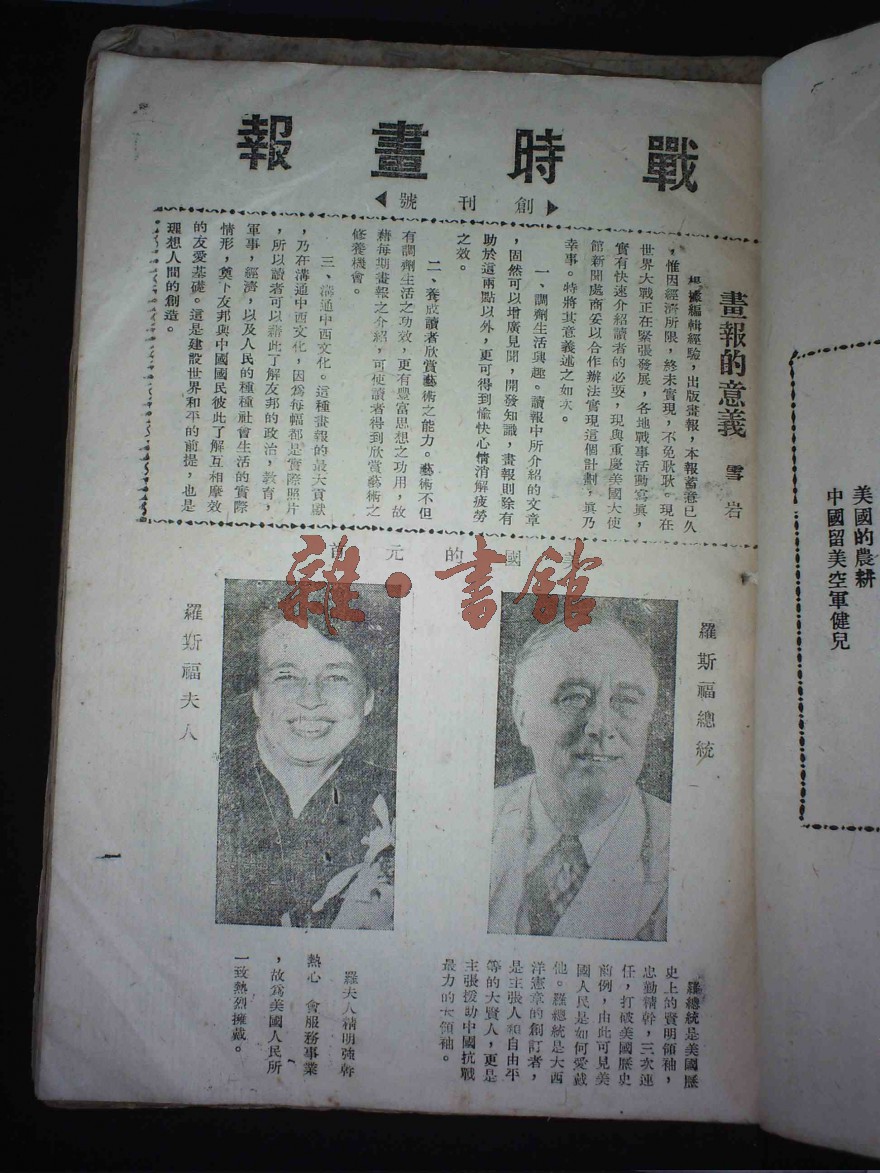 戰時畫報
創刊號
畫報的意義　雪岩
根據編輯經驗，出版畫報，本報蓄意已久
，惟因經濟所限，終未實現，不免耿耿。現在
世界大戰正在緊張發展，各地戰事活動寫真，
實有快速介紹讀者的必要，現與重慶美國大使
館新聞處商妥以合作辦法實現這個計劃，眞乃
幸事。特將其意義述之如次。
一、調劑生活興趣。讀報中所介紹的文章
，固然可以增廣見聞，開發知識，畫報則除有
助於這兩點以外，更可得到愉快心情消解疲勞
之效。
二、養成讀者欣賞藝術之能力。藝術不但
有調劑生活之功效，更有豐富思想之功用，故
藉每期畫報之介紹，可使讀者得到欣賞藝術之
修養機會。
三、溝通中西文化。這種畫報的最大貢獻
，乃在溝通中西文化，因爲每幅都是實際照片
，所以讀者可以藉此了解友邦的政治，教育，
軍事，經濟，以及人民的種種社會生活的實際
情形，奠下友邦與中國國民彼此了解互相摩效
的友愛基礎。這是建設世界和平的前提，也是
理想人間的創造。
美國的元首
羅斯福總統
羅斯福夫人
羅總統是美國歷
史上的賢明領袖，
忠勤精幹，三次連
任，打破美國歷史
前例，由此可見美
國人民是如何愛戴
他。羅總統是大西
洋憲章的創訂者，
是主張人類自由平
等的大賢人，更是
主張援助中國抗戰
最力的大領袖。
羅夫人精明強幹
熱心　會服務事業
，故爲美國人民所
一致熱烈擁戴。
一
美國的農耕
中國留美空軍健兒
雜·書館